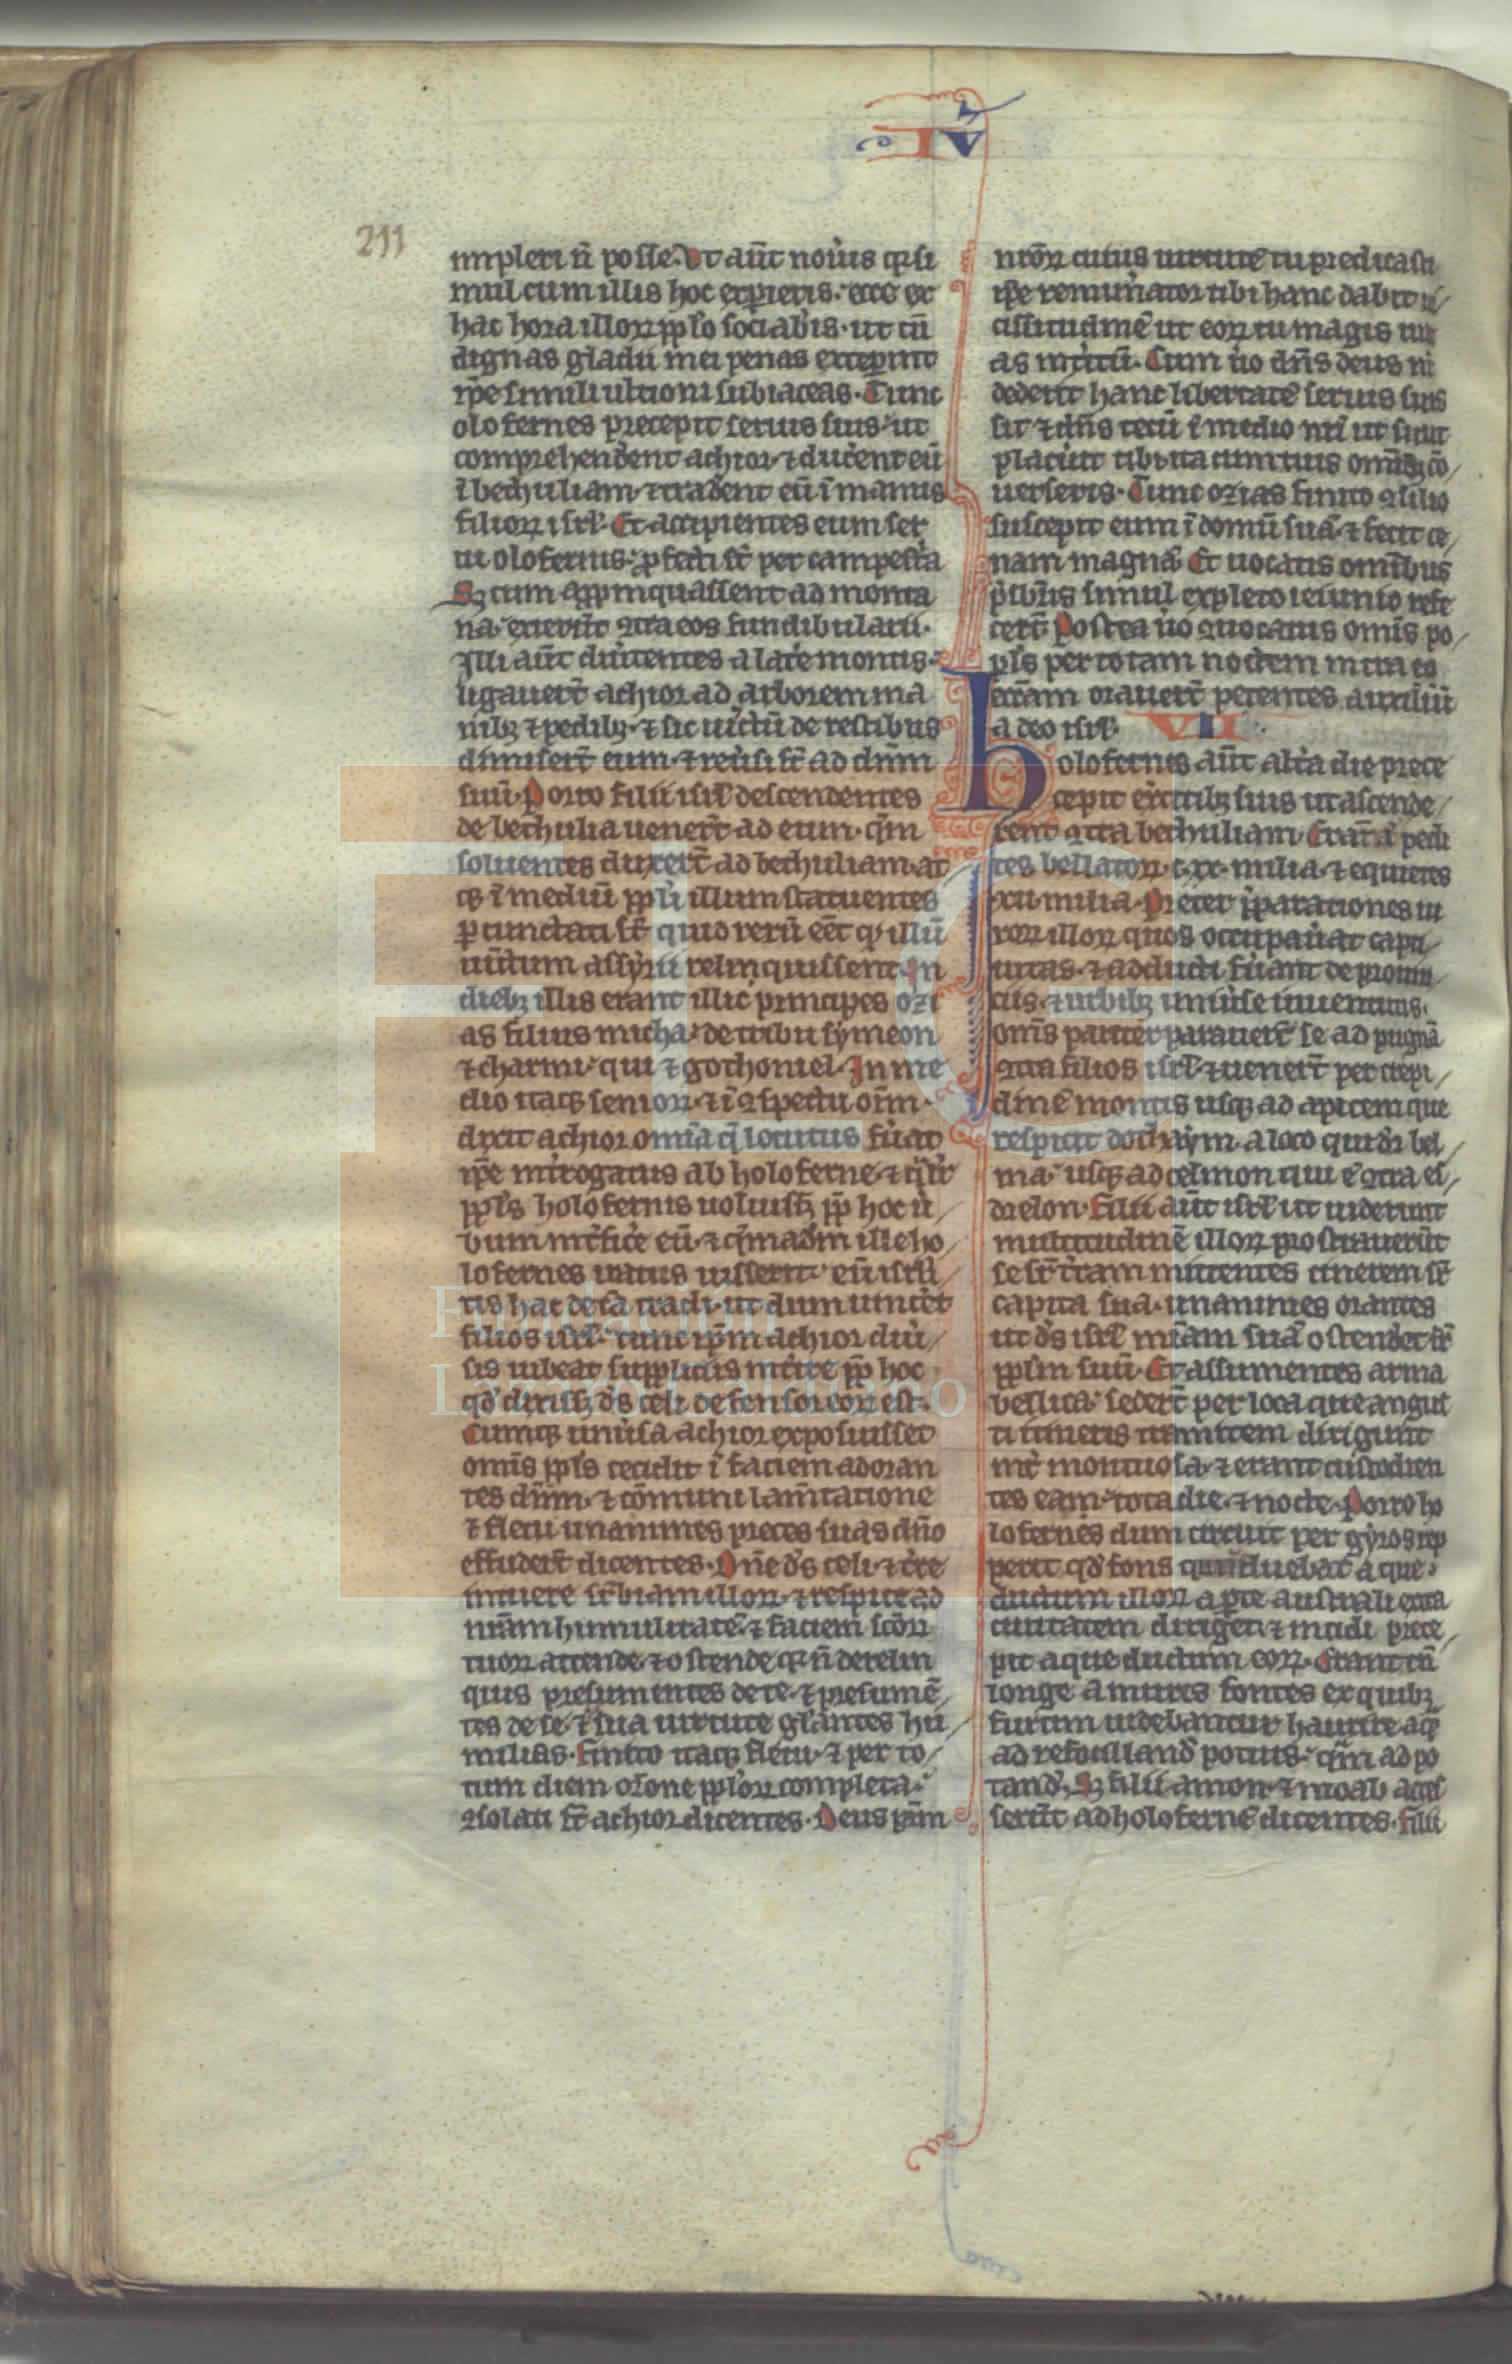 IV
211
impleri n̄ posse. Ut aūt nou̓is qꝛ si
mul cum illis hoc exꝑieris. ecce ex
hac hora illoꝝ pp̄lo sociab̓is. ut cū
dignas gladii mei penas exceꝑint
ip̄e simili ultioni subiaceas. Tunc
olofernes precepit seruis suis ut
comprehend̓ent achior. ⁊ duc̓ent eū
ī bethuliam. ⁊ trad̓ent eū ī manus
filioꝝ isrl̓. Et accipientes eum ser
ui olofernis. ꝓfecti st̄ per campest̓a
Sꝫ cum aꝓpinquassent ad monta
na. exierūt ꝯtra eos fundibularii.
Illi aūt diu̓tentes a lat̓e montis.
ligauer̄t achior ad arborem ma
nibꝫ ⁊ pedibꝫ. ⁊ sic uīctū de restibus
dimiser̄t eum. ⁊ reu̓si st̄ ad dn̄m
suū. Porro filii isrl̓ descendentes
de bethulia uener̄t ad eum. qm̄
soluentes duxer̄t ad bethuliam. at
qꝫ ī mediū pp̄li illum statuentes
ꝑcunctati st̄ quid rerū eēt qͩ illū
uīctum assyrii relinquissent. In
diebꝫ illis erant illic principes ozi
as filius micha. de tribu symeon
⁊ charmi. qui ⁊ gothoniel. In me
dio itaqꝫ senioꝝ. ⁊ ī ꝯspectu om̄.
dixit achior omīa q̄ locutus fu̓at
ip̄e int̓rogatus ab holoferne. ⁊ ql̓r
pp̄ls holofernis uoluissꝫ pp̄ hoc u̓
bum int̓fic̓e eū. ⁊ qͤmadm̄ ille ho
lofernes iratus iusserit eū isrl̓i
tis hac de cā tradi. ut dum uinc̓et
filios isrl̓. tunc ip̄m achior diu̓
sis iubeat suppliciis int̓ire pp̄ hoc
qd̓ dixissꝫ ds̄ celi defensor eoꝝ est.
Cumqꝫ uniu̓sa achior exposuisset
omīs pp̄ls cecidit ī faciem adoran
tes dn̄m. ⁊ cōmuni lam̄tatione
⁊ fletu unanimes preces suas dn̄o
effuder̄t dicentes. Dn̄e ds̄ celi. ⁊ t̓re
intuere suꝑbiam illoꝝ. ⁊ respice ad
nr̄am humilitatē. ⁊ faciem scōꝝ
tuoꝝ attende. ⁊ ostende qꝛ n̄ derelin
quis presumentes de te. ⁊ presumē
tes de se. ⁊ sua uirtute gl̓antes hu
milias. Finito itaqꝫ fletu. ⁊ per to
tum diem orōne pp̄loꝝ completa.
ꝯsolati st̄ achior dicentes. Deus pr̄m
nr̄oꝝ cuius uirtutē tu predicasti
ip̄e remun̓ator tibi hanc dabit ui
cissitudinē ut eoꝝ tu magis uid
as int̓itū. Cum u̓o dn̄s deus nr̄
dederit hanc libertatē seruis suis
sit ⁊ dn̄s tecū ī medio nr̄i ut sicut
placu̓it tibi. ita cum tuis omībꝫ cō
uerseris. Tunc ozias finito ꝯsilio
suscepit eum ī domū suā. ⁊ fecit ce
nam magnā. Et uocatis omībus
p̓sbr̄is simul expleto ieiunio refe
cer̄t. Postea u̓o ꝯuocatus omīs po
pl̓s per totam noctem intra ec
cl̓iam orauer̄t petentes auxiliū
a deo isrl̓. VII
Holofernis aūt alt̓a die prece
cepit ex̓citibꝫ suis ut ascende
rent ꝯtra bethuliam. Erant aūt pedi
tes bellatoꝝ. c. xx. milia. ⁊ equites
xxii. milia. Preter p̄parationes ui
roꝝ illoꝝ quos occupau̓at capti
uitas. ⁊ adducti fu̓ant de prouin
ciis. ⁊ urbibꝫ uniu̓se iuuentutis.
omīs pariter parauer̄t se ad pugnā
ꝯtra filios isrl̓. ⁊ uener̄t per crepi
dinē montis usqꝫ ad apicem que
respicit dothaym. a loco qui d̓r bel
ma. usqꝫ ad celmon qui ē ꝯtra es
drelon. Filii aūt isrl̓ ut uiderunt
multitudinē illoꝝ prostrauerūt
se sr̄ t̓ram mittentes cinerem sr̄
capita sua. unanimes orantes
ut ds̄ isrl̓ mīam suā ostend̓et sr̄
pp̄lm suū. Et assumentes arma
bellica. seder̄t per loca que angus
ti itineris tramitem dirigunt
int̓ montuosa. ⁊ erant custodien
tes eam tota die. ⁊ nocte. Porro ho
lofernes dum circuit per gyros rep
perit qd̓ fons qui īfluebat aque
ductum illoꝝ a parte australi extra
ciuitatem dirig̓et. ⁊ incidi prece
pit aque ductum eoꝝ. Erant tn̄
longe a muris fontes ex quibꝫ
furtim uidebantur haurire aqͣ
ad refocilland̓ potius. qͣm ad po
tand̓. Sꝫ filii amon. ⁊ moab acces
serūt ad holofernē dicentes. Filii
Fundación